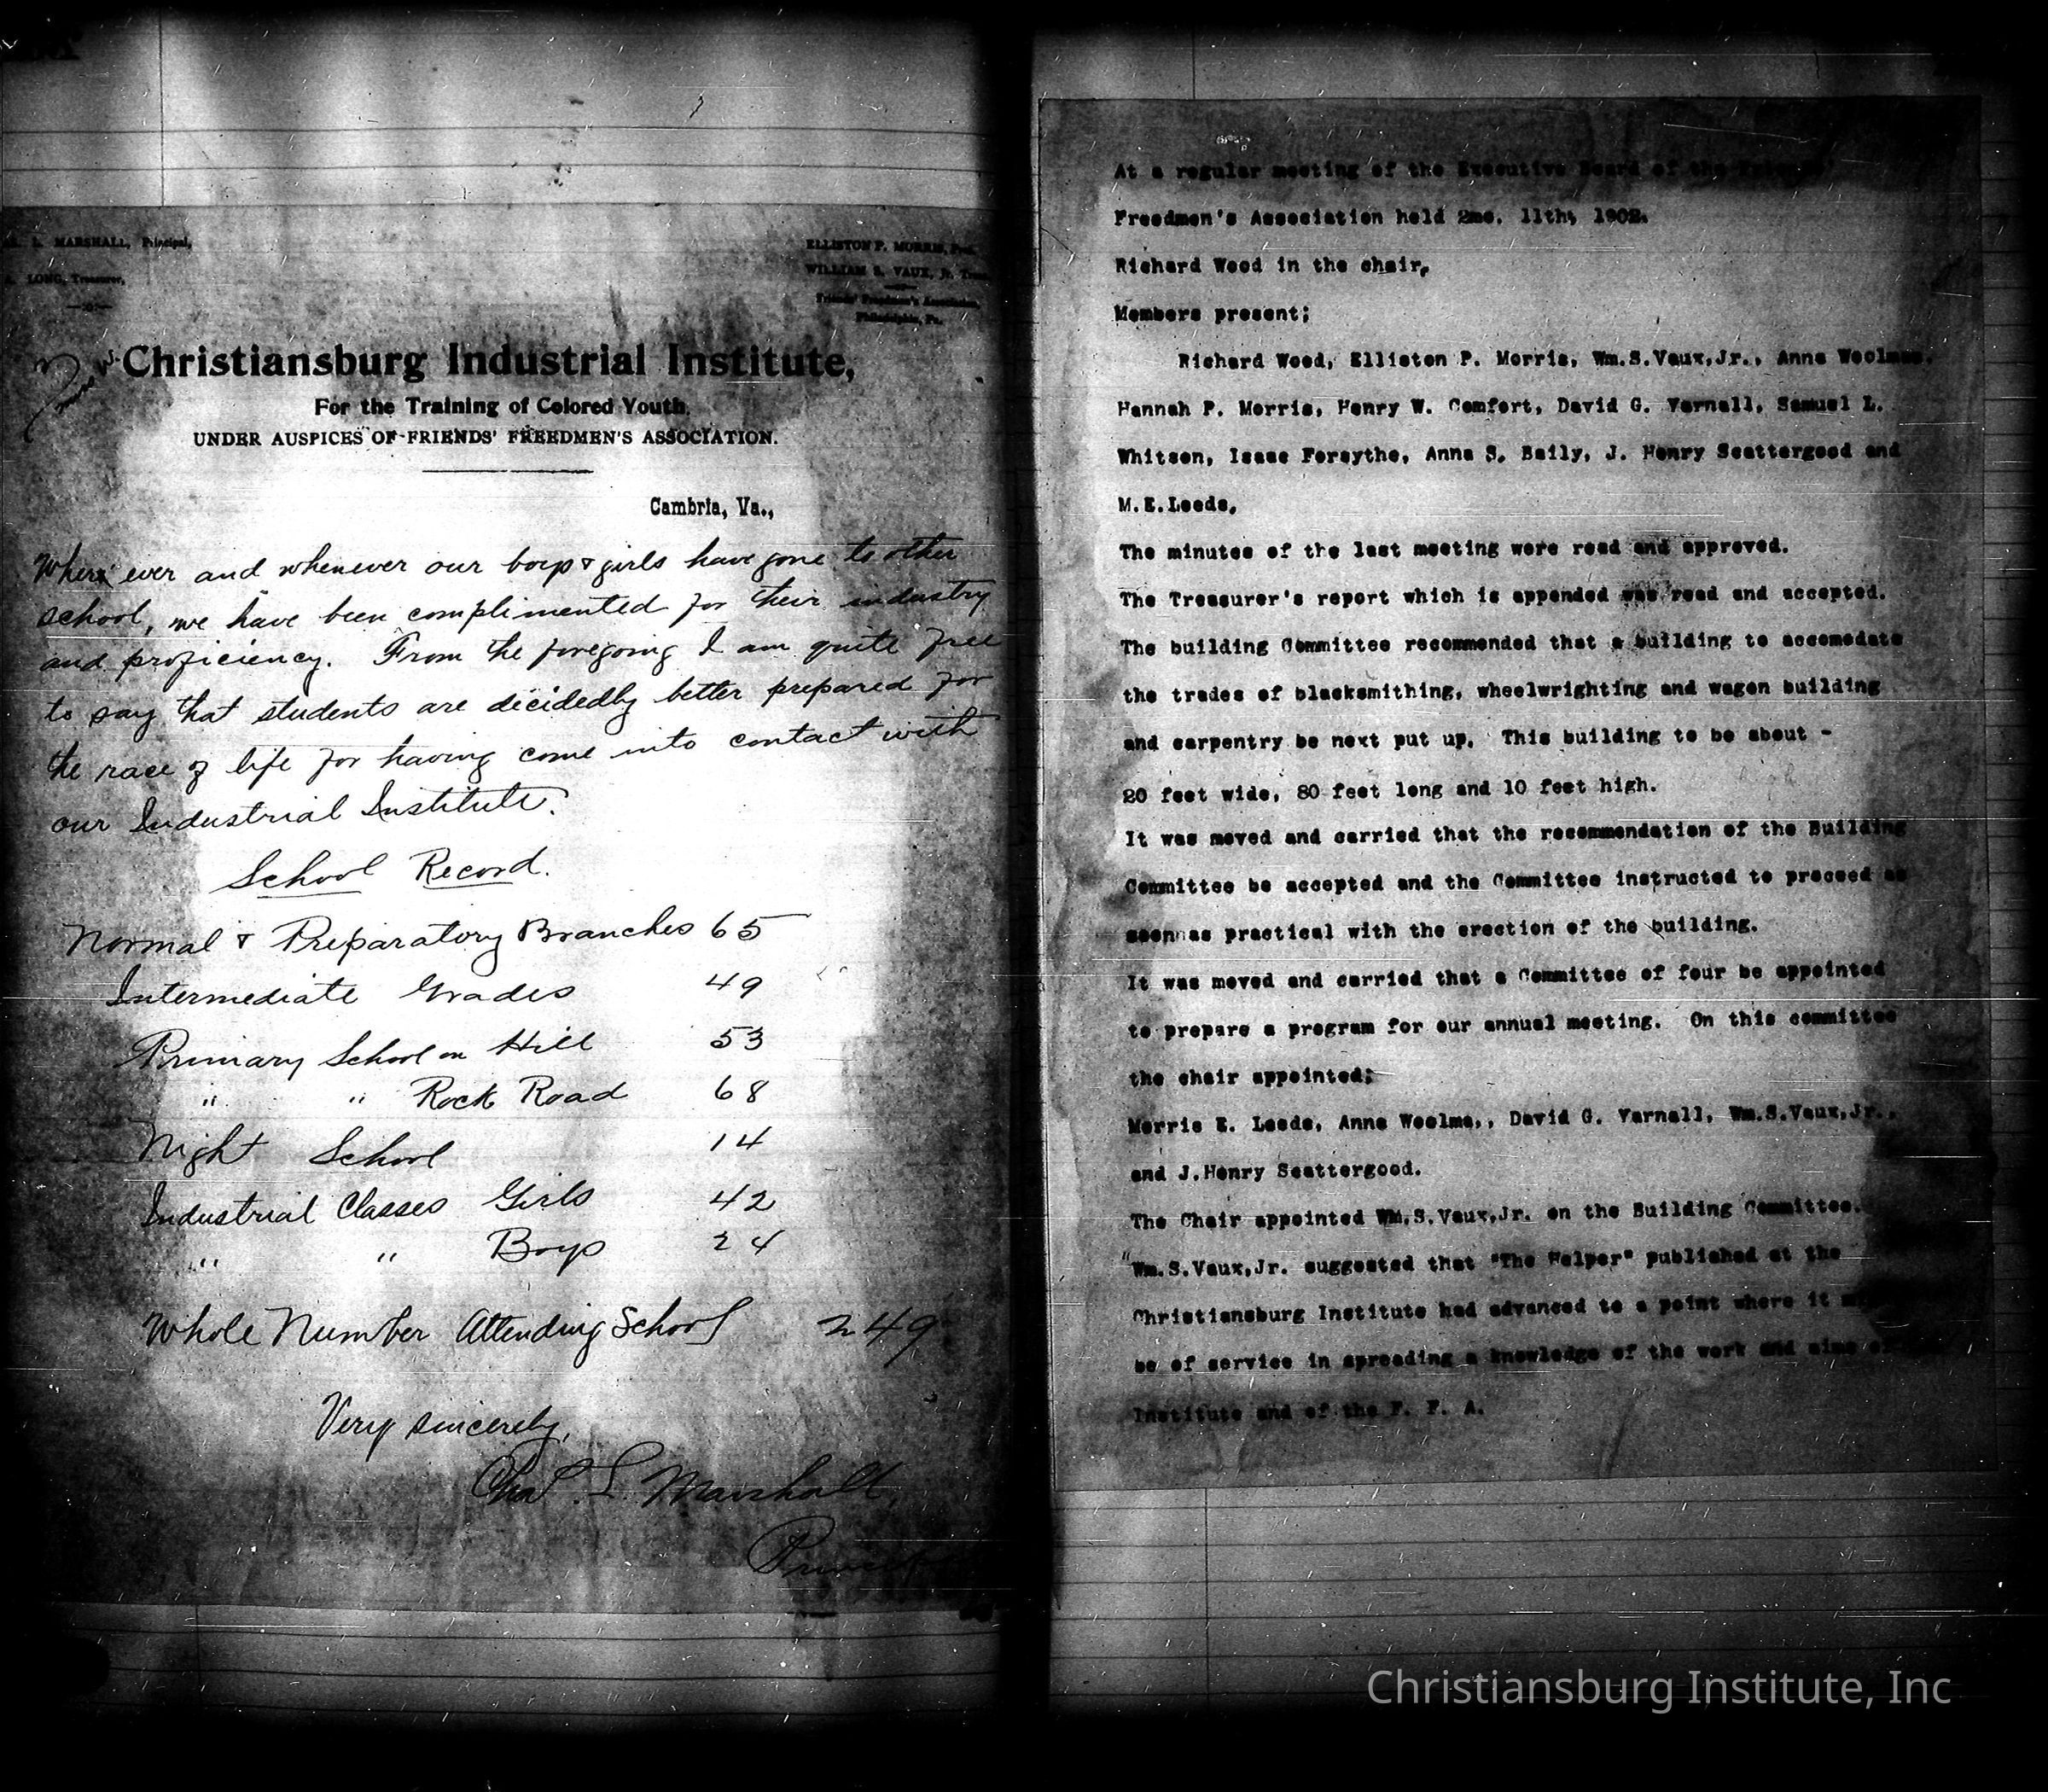 L. MARSHALL, Principal,
LONG, Treasurer,
ELLISTON P. MORRIS,
WILLIAM S. VAUX, Jr.
Friends' Freedmen's Association,
Philadelphia, Pa.
Christiansburg Industrial Institute,
For the Training of Colored Youth,
UNDER AUSPICES OF FRIENDS' FREEDMEN'S ASSOCIATION.
Cambria, Va.,
Where ever and whenever our boys & girls have gone to other
school, we have been complimented for their industry
and proficiency. From the foregoing I am quite free
to say that students are decidedly better prepared for
the race of life for having come into contact with
our Industrial Institute.
School Record.
Normal & Preparatory Branches 65
Intermediate Grades 49
Primary School on Hill 53
" " Rock Road 68
Night School 14
Industrial Classes Girls 42
" " Boys 24
Whole Number Attending School 249
Very sincerely,
Chas. L. Marshall,
At a regular meeting of the Executive Board of the
Freedmen's Association held 2mo. 11th, 1902.
Richard Wood in the chair,
Members present;
Richard Wood, Elliston P. Morris, Wm.S.Vaux,Jr., Anna
Hannah P. Morris, Henry W. Comfort, David G. Yarnall, Samuel L.
Whitson, Isaac Forsythe, Anna S. Baily, J. Henry Scattergood and
M.E.Leeds,
The minutes of the last meeting were read and approved.
The Treasurer's report which is appended was read and accepted.
The building Committee recommended that a building to accomodate
the trades of blacksmithing, wheelwrighting and wagon building
and carpentry be next put up. This building to be about -
20 feet wide, 80 feet long and 10 feet high.
It was moved and carried that the recommendation of the Building
Committee be accepted and the Committee instructed to proceed as
soon as practical with the erection of the building.
It was moved and carried that a Committee of four be appointed
to prepare a program for our annual meeting. On this committee
the chair appointed;
Morris E. Leeds, Anna Woolma,, David G. Yarnall, Wm.S.Vaux,Jr.,
and J.Henry Scattergood.
The Chair appointed Wm.S.Vaux,Jr. on the Building Committee.
Wm.S.Vaux,Jr. suggested that "The Helper" published at the
Christiansburg Institute had advanced to a point where it
be of service in spreading a knowledge of the work and aims
Institute and of the F. F. A.
Christiansburg Institute, Inc